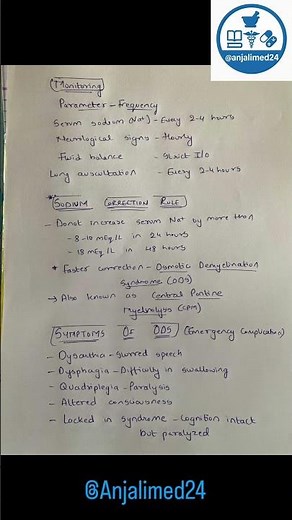 @anjalimed24
Monitoring
Parameter - Frequency
Serum sodium (Na+) - Every 2-4 hours
Neurological signs - Hourly
Fluid balance - Strict I/O
Lung auscultation - Every 2-4 hours
* SODIUM CORRECTION RULE
- Donot increase serum Na+ by more than
- 8-10 mEq/L in 24 hours
- 18 mEq/L in 48 hours
* Faster correction - Osmotic Demyelination
Syndrome (ODS)
→ Also known as Central Pontine
Myelinolysis (CPM)
SYMPTOMS OF ODS (Emergency Complication)
- Dysarthia - Slurred speech
- Dysphagia - Difficulty in swallowing
- Quadriplegia - Paralysis
- Altered consciousness
- Locked in syndrome - Cognition intact
but paralyzed
@Anjalimed24